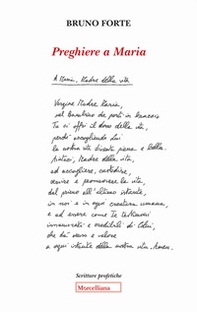 BRUNO FORTE
Preghiere a Maria
A Maria, Madre della vita
Vergine Madre Maria,
nel Bambino che porti in braccio
Tu ci offri il dono della vita,
perché accogliendo Lui
la nostra vita diventi piena e bella
Madre della vita,
ad accogliere, custodire,
servire e promuovere la vita,
dal primo all'ultimo istante,
in noi e in ogni creatura umana,
e ad essere come Te testimoni
innamorati e credibili di Colui,
che dà senso e valore
a ogni istante della nostra vita. Amen.
Scritture profetiche
Morcelliana